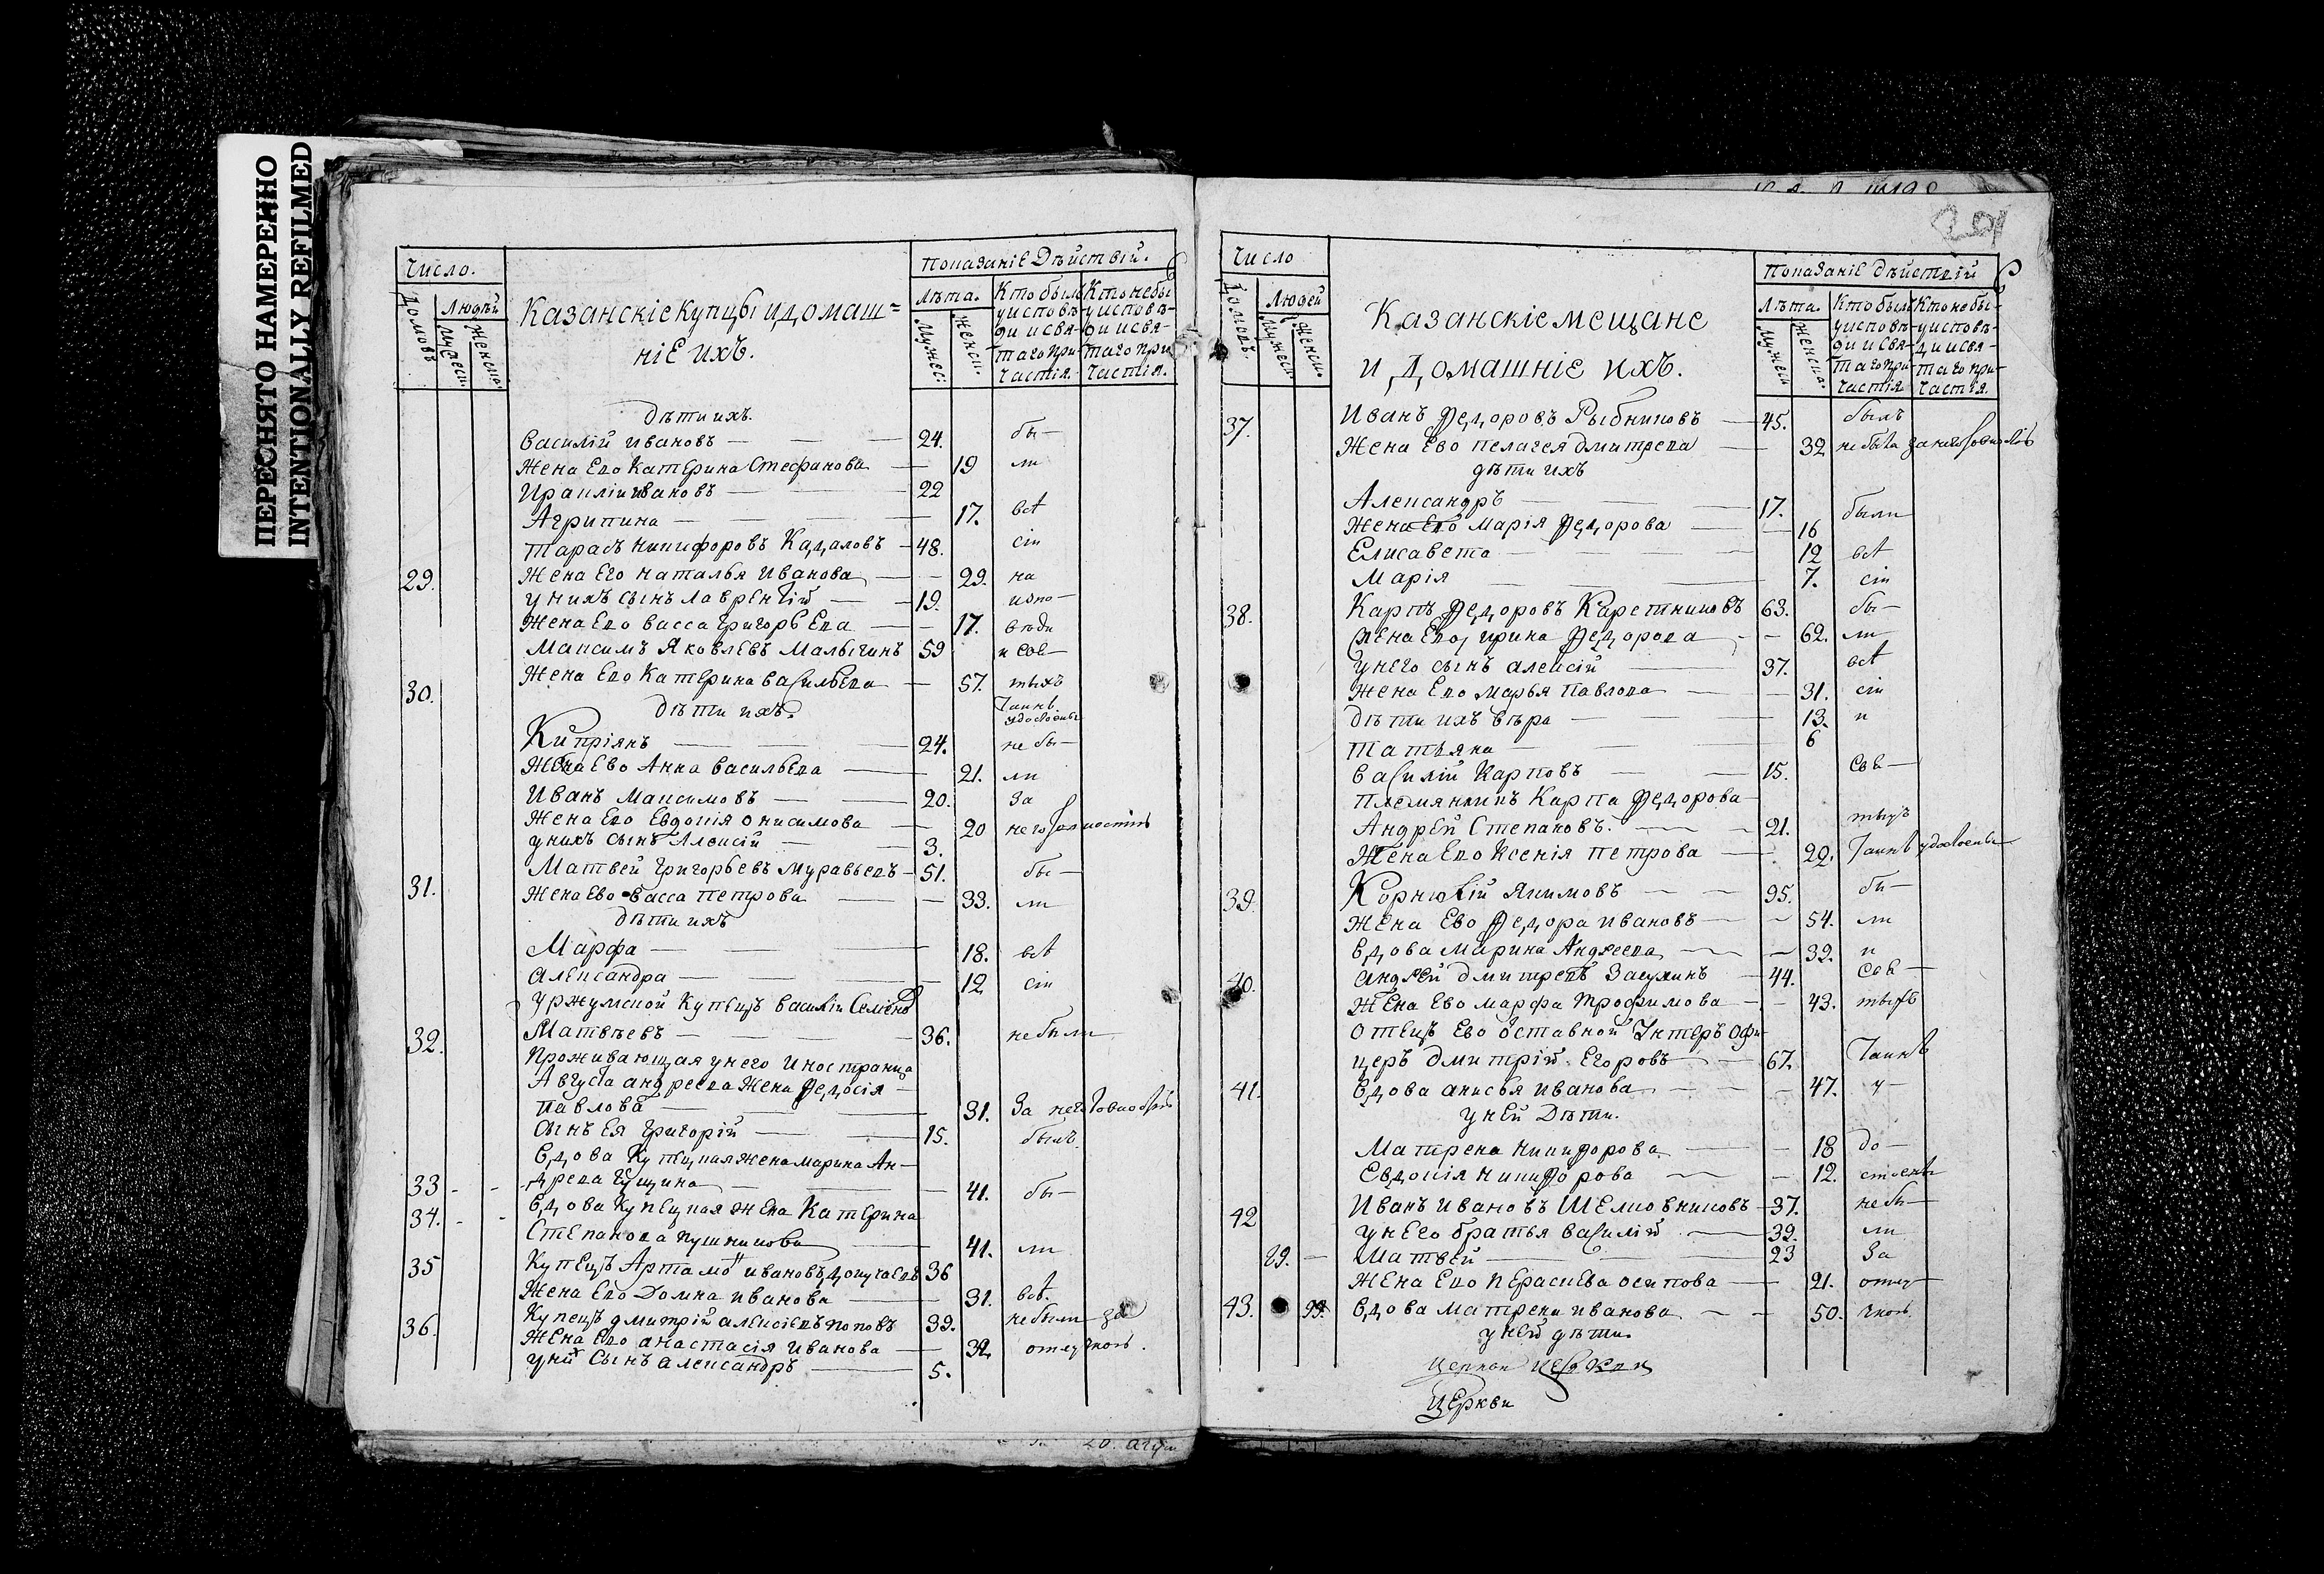 ПЕРЕСНЯТО НАМЕРЕННО
INTENTIONALLY REFILMED
Число.
Показаніе Дѣйствій.
Домовъ
Людѣй
Мужес.
Женска.
Казанскіе купцы и домаш=
ніе ихъ.
Лѣта.
Мужес:
Женск.
Кто былъ
у исповѣ-
ди и свя-
таго При-
частія.
Кто не бы
у исповѣ-
ди и свя-
таго при
частія.
Дѣти ихъ.
Василій Ивановъ — 24. бы—
Жена Ево Катерина Стефанова — 19 ли
Ираклій Ивановъ — 22
Агрипина — 17. всѣ
Тарасъ Никифоровъ Кадаловъ — 48. сіи
29. Жена Его Наталья Иванова — 29. на
у нихъ сынъ Лаврентій — 19. испо—
Жена Ево Васса Григорьева — 17. вѣди
Максимъ Яковлевъ Малыгинъ 59 и свя—
30. Жена Ево Катерина Васильева — 57. тыхъ
Дѣти ихъ. Таинъ
удостоены
Кипріянъ — 24. не бы—
Жена Ево Анна Васильева — 21. ли
Иванъ Максимовъ — 20. За
Жена Ево Евдокія Онисимова — 20 неготовностію
у нихъ сынъ Алексій — 3.
Матвей Григорьевъ Муравьевъ — 51. бы—
31. Жена Ево Васса Петрова — 33. ли
дѣти ихъ
Марфа — 18. всѣ
Александра — 12. сіи
Уржумской Купецъ Василій Семенов
32. Матвѣевъ — 36. не были
Проживающая у него Иностранца
Августа Андреева Жена Федосія —
Павлова — 31. За неготовностію
Сынъ Ея Григорій — 15. былъ
Вдова Купецкая жена Марина Ан—
33 - - дреева — 41. бы—
34. - - Вдова Купецкая жена Катерина
Степанова Пушникова — 41. ли
35 Купецъ Артамо Ивановъ 36
Жена Ево Домна Иванова — 31. всѣ.
36. Купецъ Дмитрій Алексіевъ Поповъ 39. не были за
Жена Ево Анастасія Иванова — 32. отлучкою.
у них Сынъ Александръ — 5.
Число
Показаніе дѣйствій
Домовъ.
Людей
Мужес.
Женск.
Казанскіе мещане
и домашніе ихъ.
Лѣта.
Мужеск
Женска.
Кто былъ
у исповѣ-
ди и свя-
таго при-
частія
Кто не бы-
у исповѣ-
ди и свя-
таго при-
частія.
37. Иванъ Федоровъ Рыбниковъ — 45. былъ
Жена Ево Пелагея Дмитрева — 32 не была за неготовностію
дѣти ихъ
Александръ — 17. были
Жена Ево Марія Федорова — 16
Елисавета — 12 всѣ
Марія — 7. сіи
38. Карпъ Федоровъ Каретниковъ 63. бы—
Жена Ево, Ирина Федорова - - 62. ли
У него сынъ Алексій — 37. всѣ
Жена Ево Марья Павлова — 31. сіи
Дѣти ихъ Вѣра — 13. и
Татьяна — 6
Василій Карповъ — 15. Свя—
Племянникъ Карпа Федорова—
Андрей Степановъ. — 21. тыхъ
Жена Ево Ксенія Петрова — 22. Таинъ удостоены
39. Корнилій Якимовъ — 95. бы—
Жена Ево Федора Ивановъ — 54. ли
Вдова Марина Андреева — 32. и
40. Андрей Дмитревъ — 44. Свя—
Жена Ево Марфа Трофимова — 43. тыхъ
Отецъ Ево Отставной Унтеръ Офи—
церъ Дмитрій Егоровъ — 67. Таинъ
41. Вдова Анисья Иванова — 47. у—
у ней Дѣти.
Матрена Никифорова — 18 до—
Евдокія Никифорова — 12. стоены
42 Иванъ Ивановъ Шелковниковъ — 37. не бы—
у него братья Василій — 32. ли
89. — Матвей — 23 За
Жена Ево Пераскева Осипова — 21. отлу—
43. 99. Вдова Матрена Иванова — 50. чкою.
у ней дѣти.
Церкви
Церкви